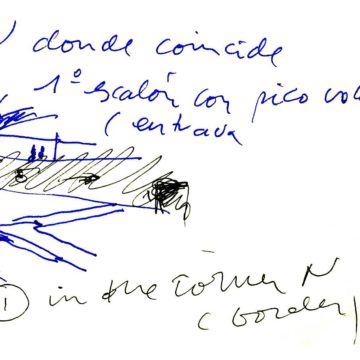 N donde coincide
1º escalón con pico
(entrada
① in the corner N
(border)